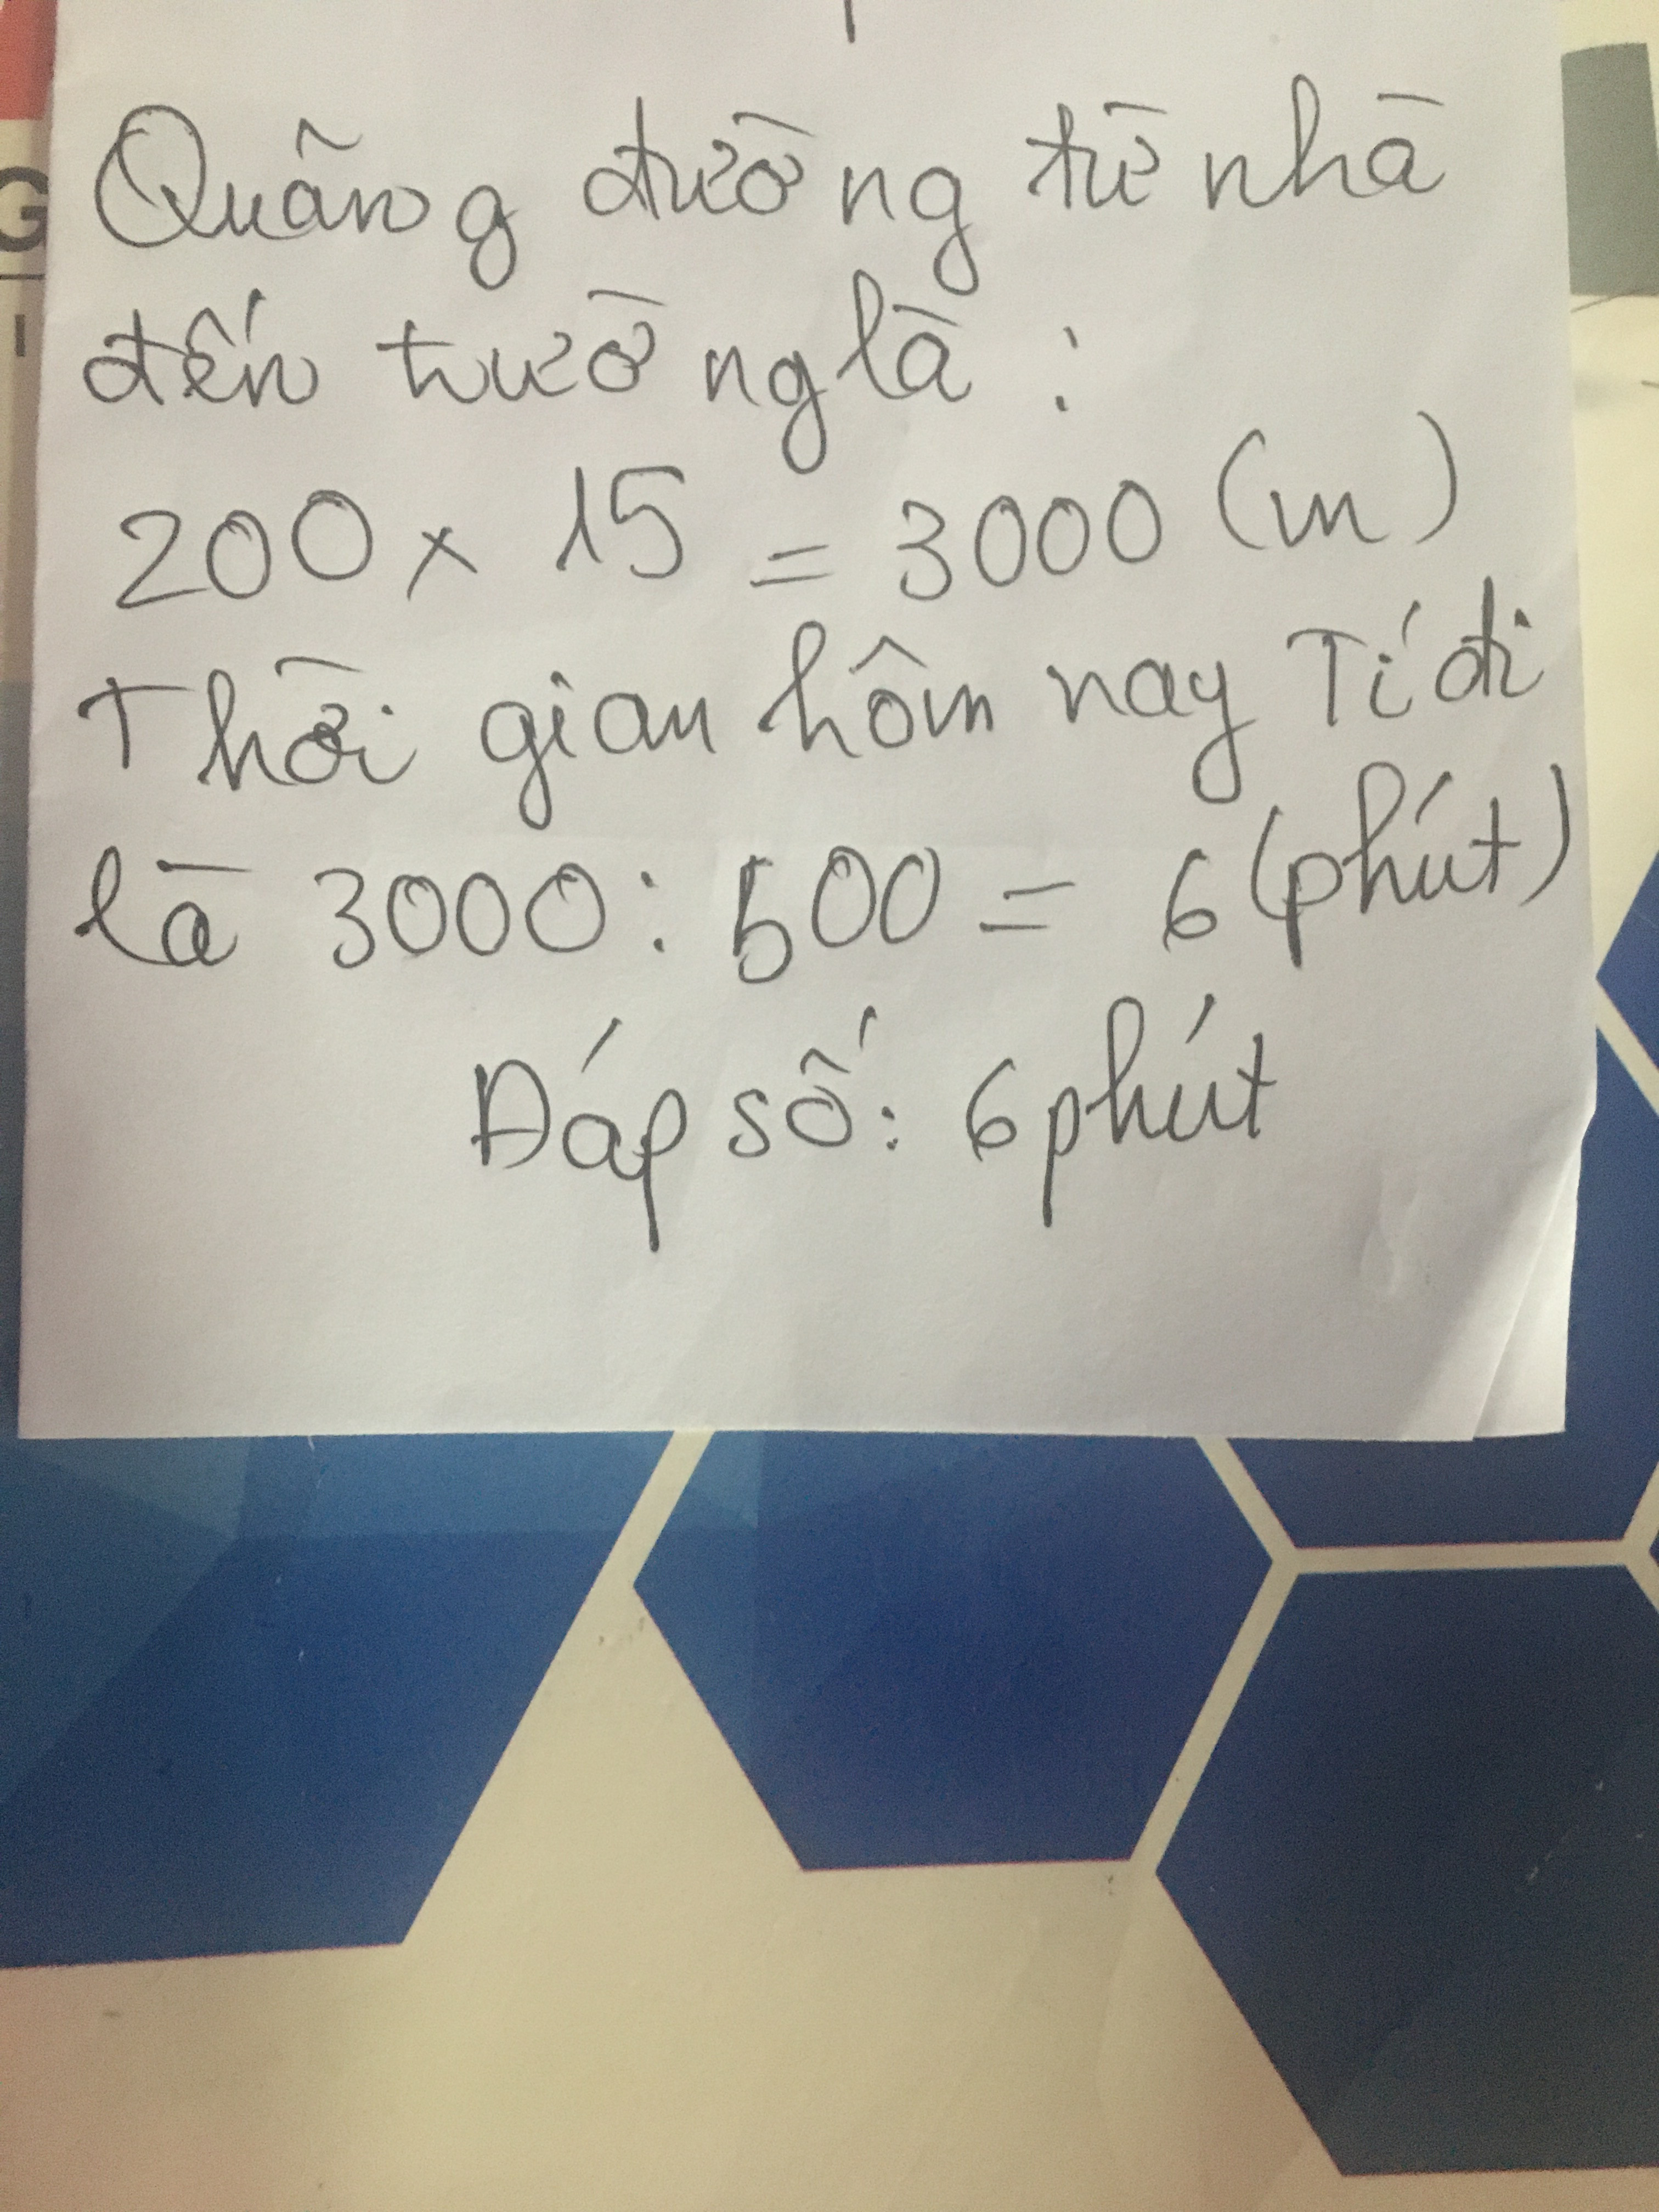 Quãng đường từ nhà
đến trường là :
200 x 15 = 3000 (m)
Thời gian hôm nay Tí đi
là 3000 : 500 = 6 (phút)
Đáp số: 6 phút
G
I